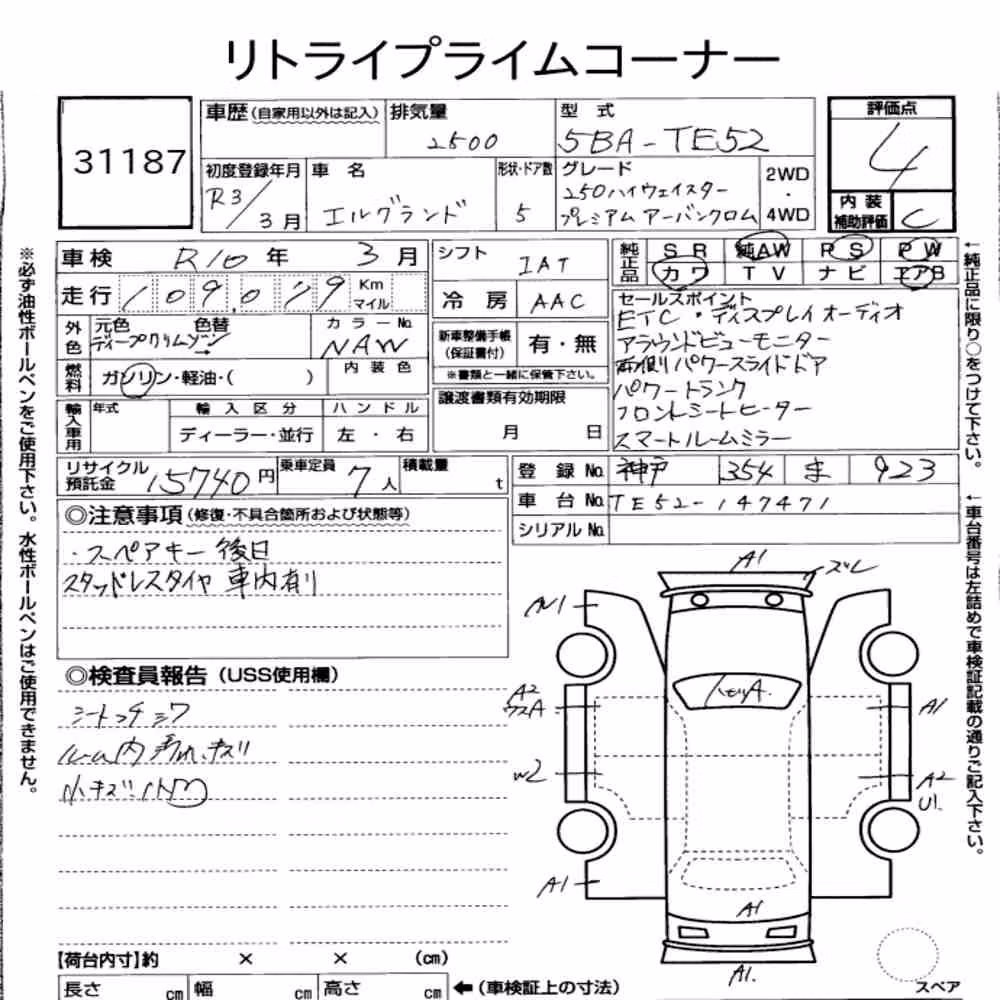 リトライプライムコーナー
31187
車歴(自家用以外は記入)
排気量
2500
型 式
5BA-TE52
評価点
4
初度登録年月
R3/3月
車 名
エルグランド
形状・ドア数
5
グレード
250ハイウェイスター
プレミアム アーバンクロム
2WD
・
4WD
内 装
補助評価
C
※必ず油性ボールペンをご使用下さい。水性ボールペンはご使用できません。
車検 R10年 3月
走行 109,079 Km マイル
外色 元色 色替
ディープクリムゾン
カラーNo.
NAW
燃料 ガソリン・軽油・( )
内 装 色
輸入車用 年式
輸 入 区 分
ハ ン ド ル
ディーラー・並行
左 ・ 右
シフト
IAT
冷 房 AAC
新車整備手帳
(保証書付)
有・無
※書類と一緒に保管下さい。
譲渡書類有効期限
月 日
純正品 SR 純AW PS PW
カワ TV ナビ エアB
セールスポイント
ETC・ディスプレイオーディオ
アラウンドビューモニター
両側パワースライドドア
パワートランク
フロントシートヒーター
スマートルームミラー
←純正品に限り○をつけて下さい。
リサイクル
預託金
15740円
乗車定員
7人
積載量
t
登 録 No. 神戸 354 ま 923
車 台 No. TE52-147471
シリアル No.
←車台番号は左詰めで車検証記載の通りご記入下さい。
◎注意事項(修復・不具合箇所および状態等)
・スペアキー 後日
スタッドレスタイヤ 車内有り
◎検査員報告(USS使用欄)
シート シワ
ルーム内 汚れ、キズ
小キズ
A1
ズレ
A2
A
A1
W2
A2
U1.
A1
A1
A1.
スペア
【荷台内寸】約 × × (cm)
長さ cm 幅 cm 高さ cm ←(車検証上の寸法)